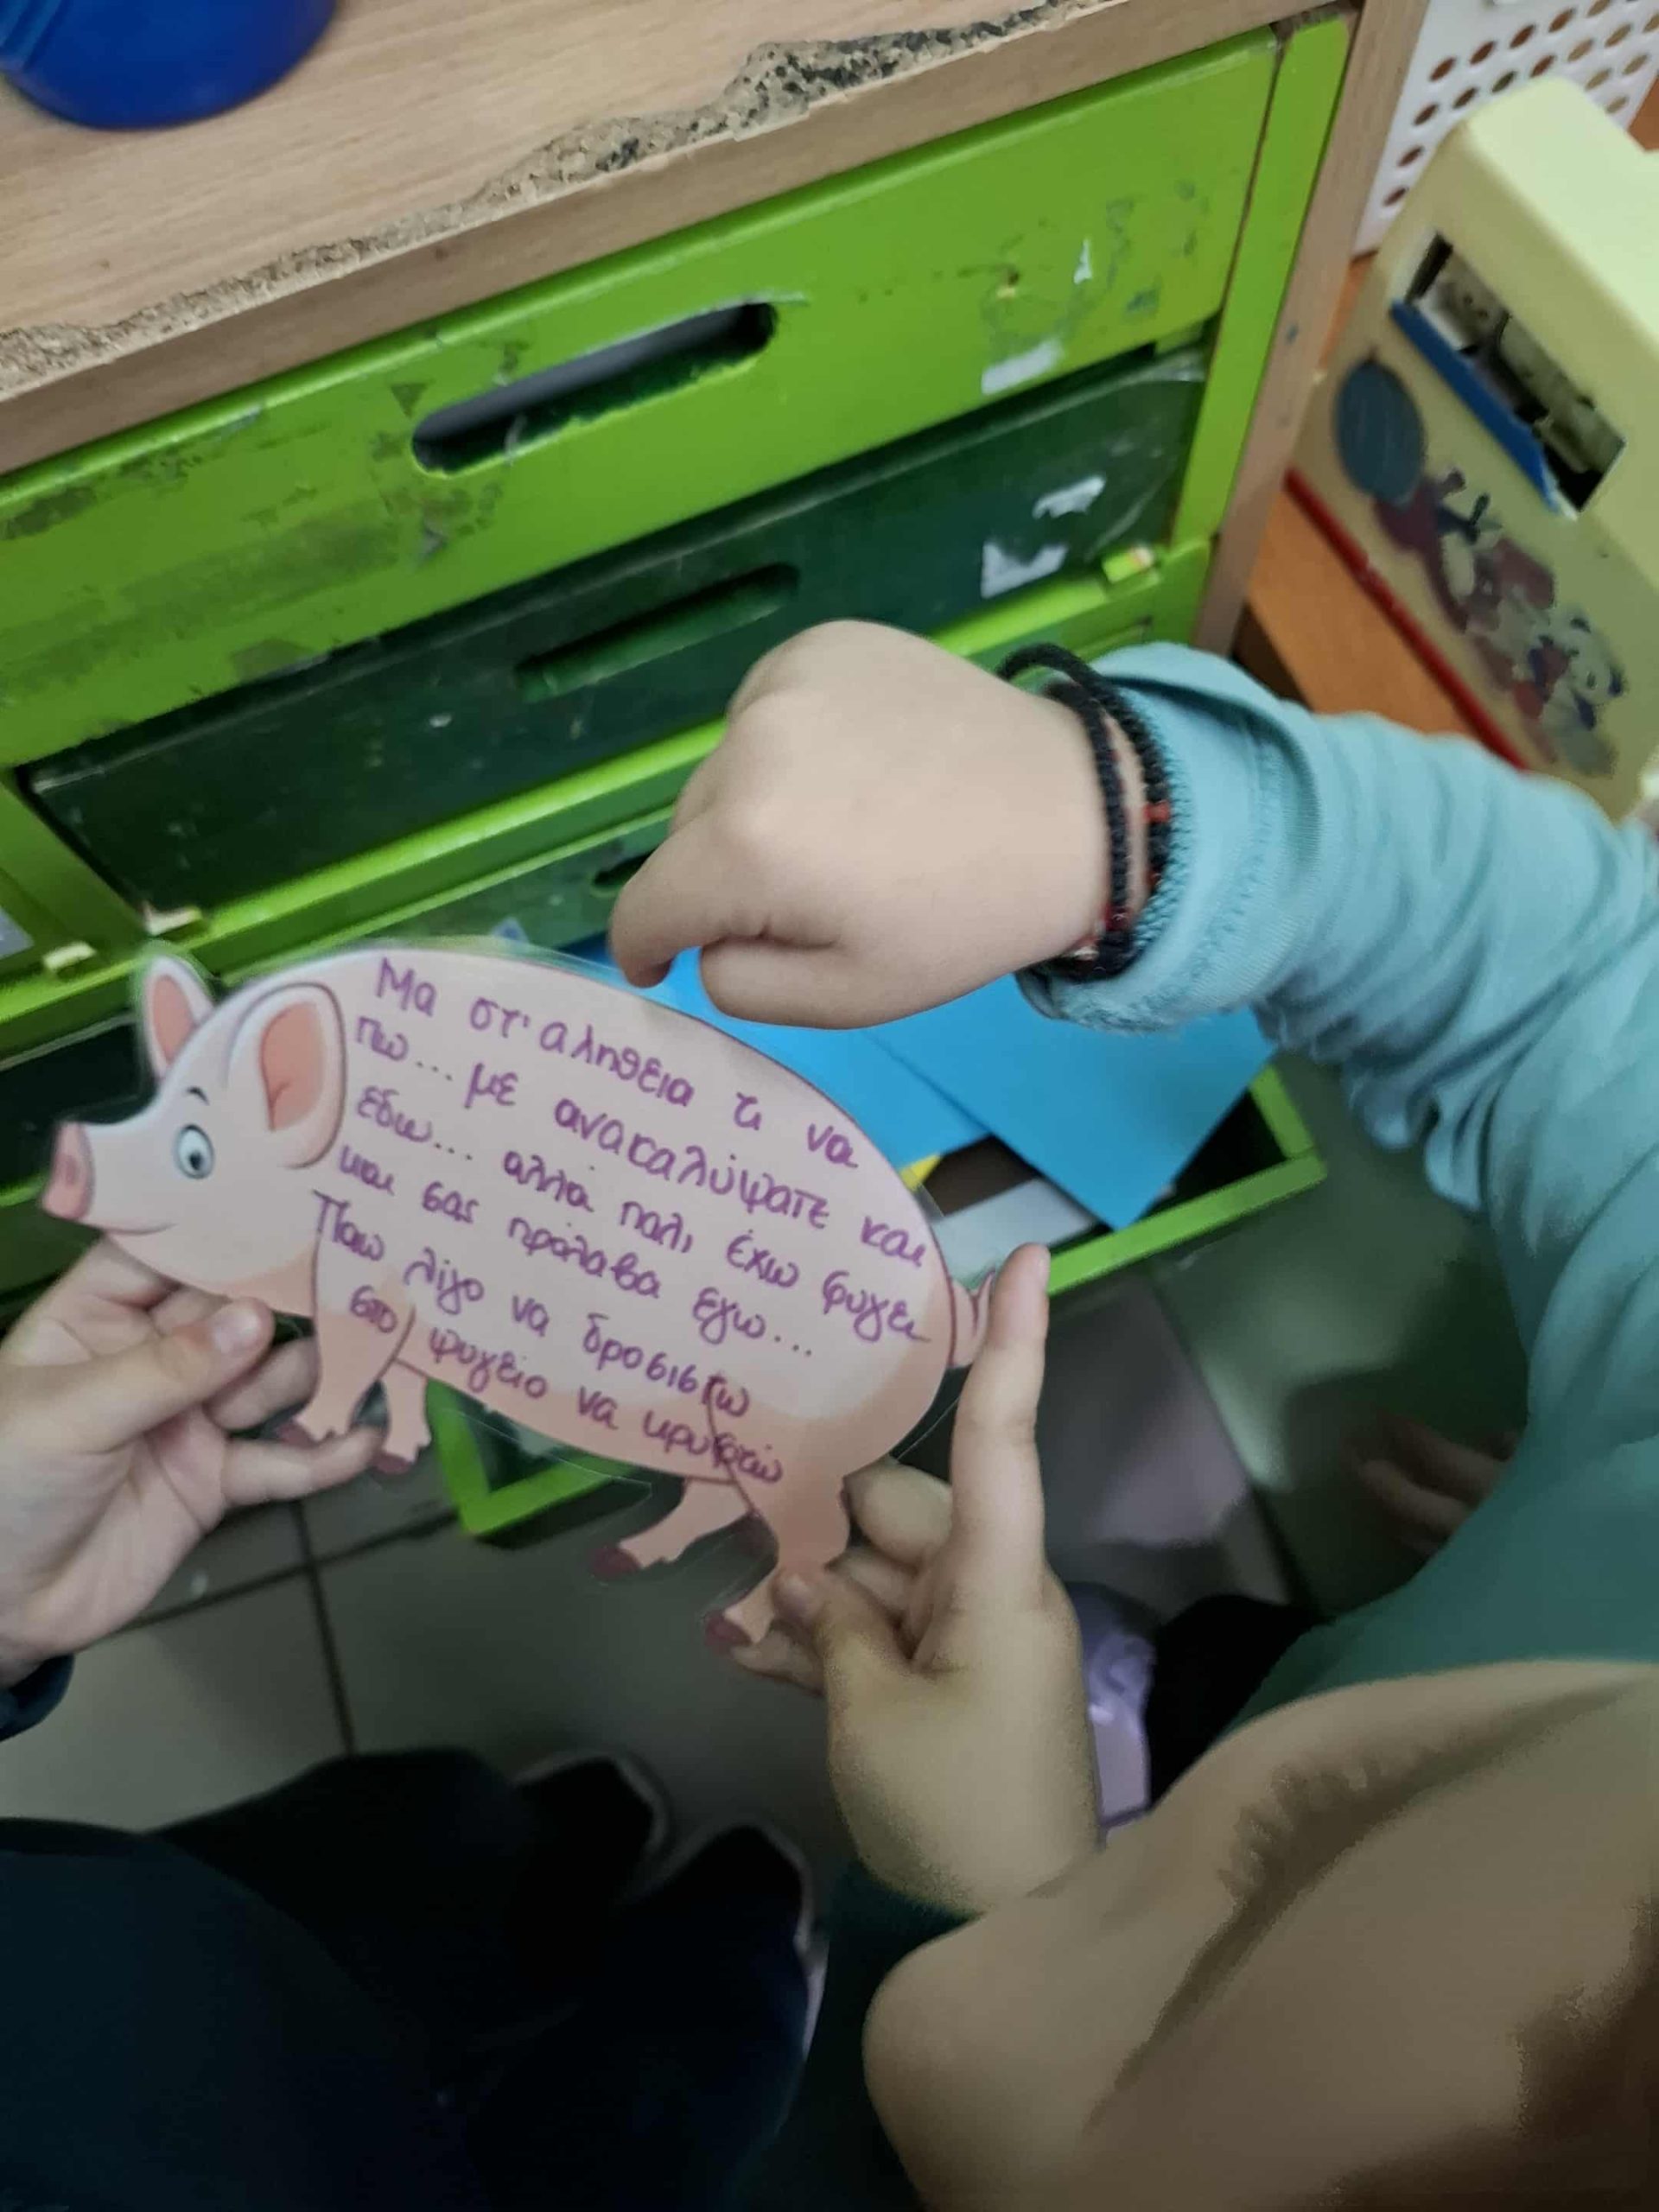 Μα στ' αληθεια τι να
πω... με ανακαλύψατε και
εδω... αλλά παλι έχω φυγει
και σας πρόλαβα εγω...
Παω λίγο να δροσιστω
στο ψυγείο να κρυφτώ